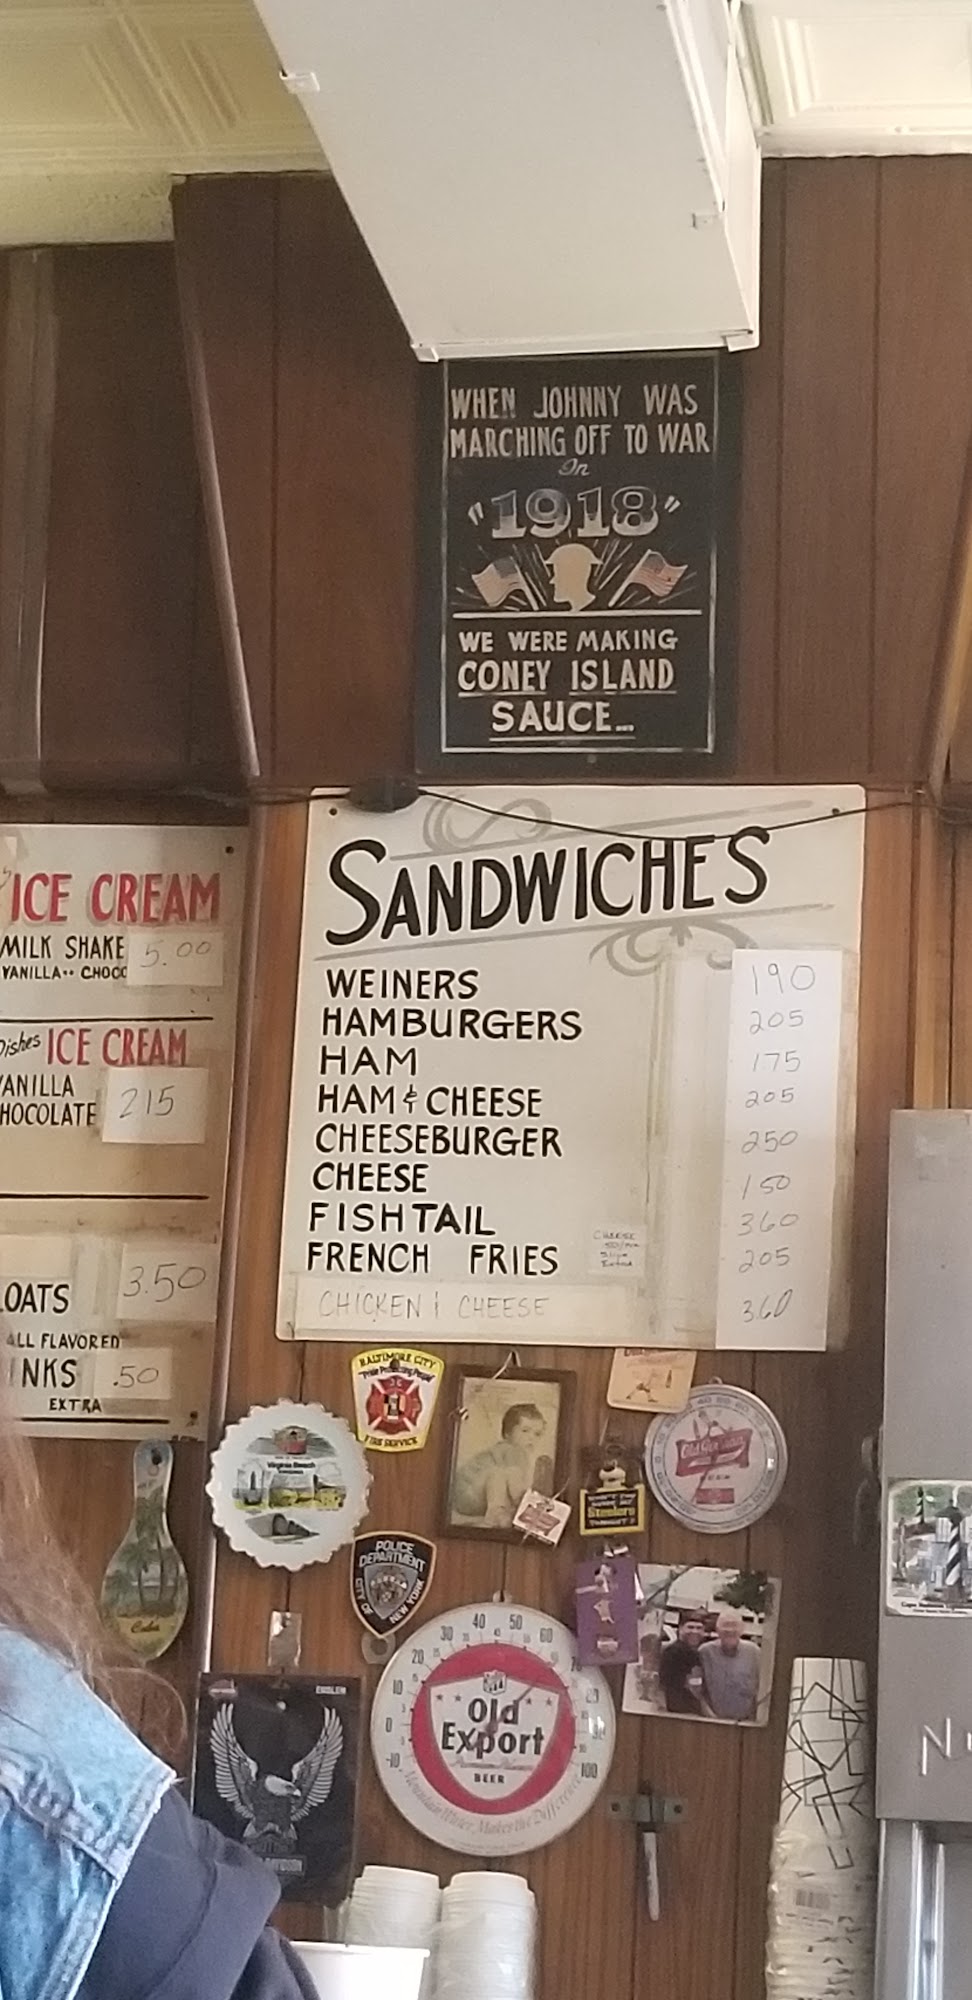 WHEN JOHNNY WAS
MARCHING OFF TO WAR
In
"1918"
WE WERE MAKING
CONEY ISLAND
SAUCE...
ICE CREAM
MILK SHAKE 5.00
VANILLA·· CHOCO
Dishes ICE CREAM
VANILLA
CHOCOLATE 215
OATS 3.50
ALL FLAVORED
INKS .50
EXTRA
SANDWICHES
WEINERS 190
HAMBURGERS 205
HAM 175
HAM & CHEESE 205
CHEESEBURGER 250
CHEESE 150
FISHTAIL 360
FRENCH FRIES 205
CHEESE
Extra
CHICKEN & CHEESE 360
BALTIMORE CITY
"Pride Protecting People"
FIRE SERVICE
Virginia Beach
Old German
POLICE
DEPARTMENT
CITY OF NEW YORK
Cuba
Steelers
10 20 30 40 50 60
0 -10 100
Old
Export
BEER
Mountain Water Makes the Difference
N